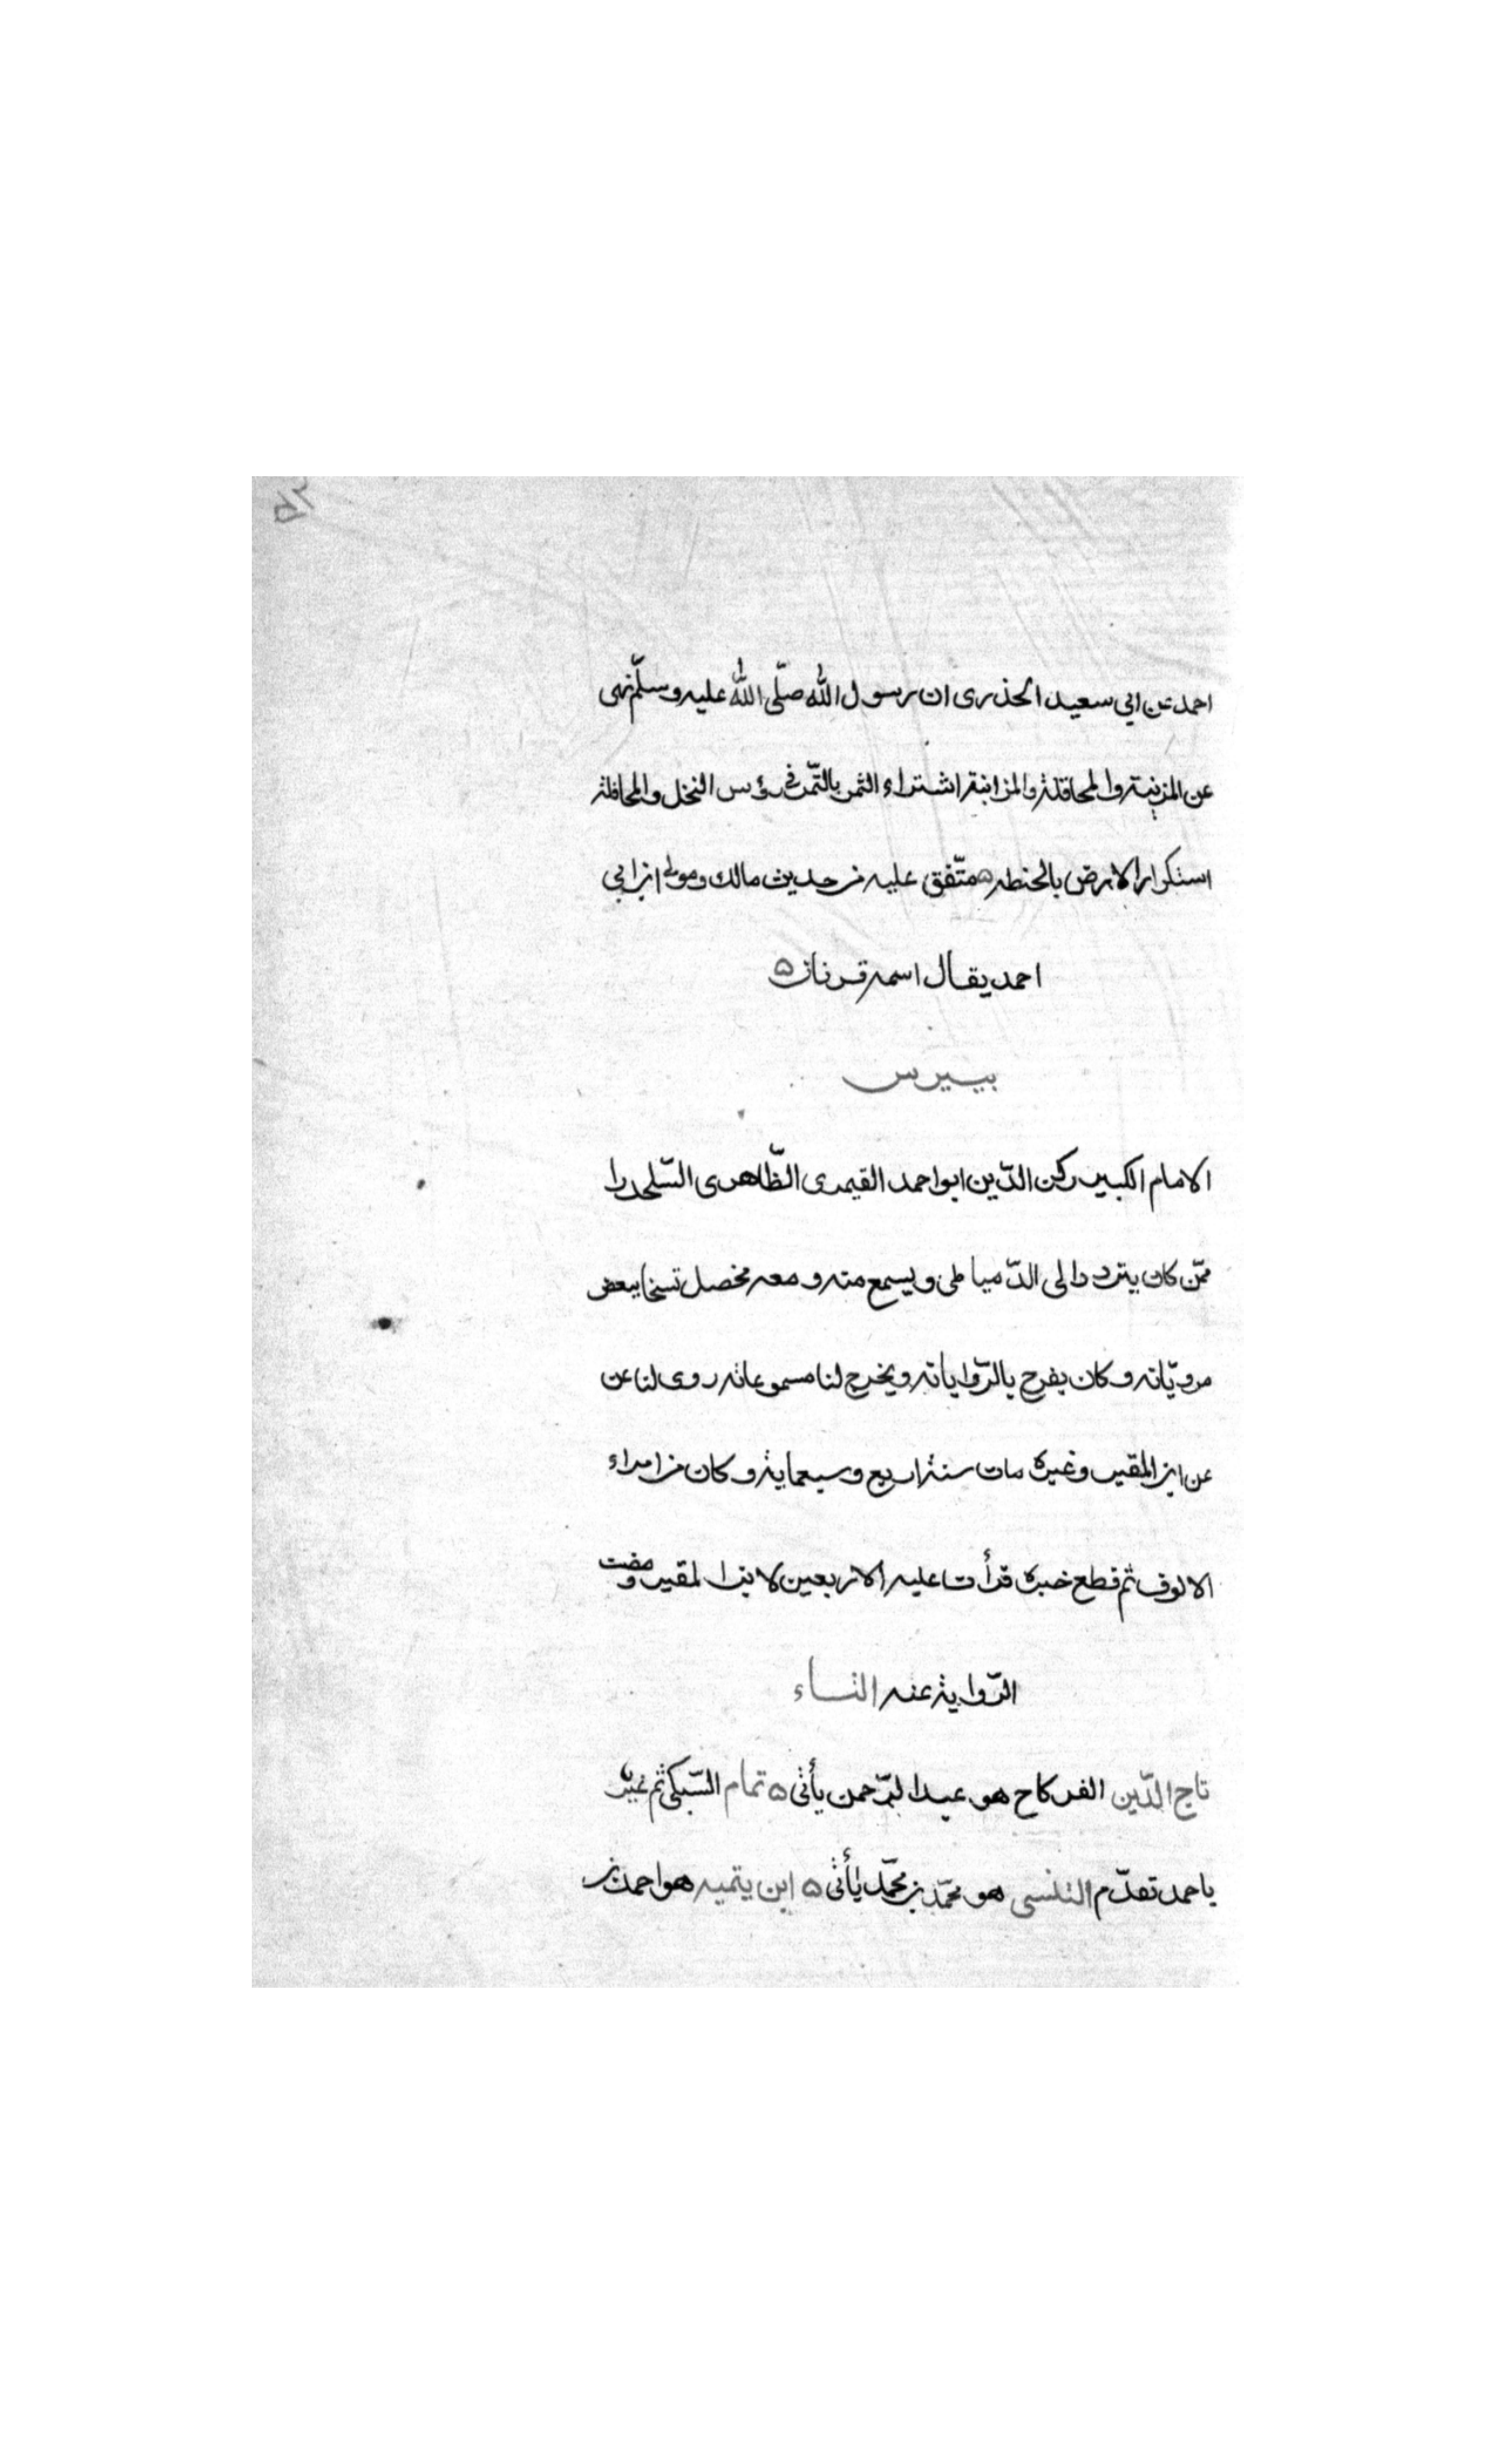 احمد عن ابي سعيد الخذرى ان رسول الله صلّى الله عليه وسلّم نهى
عن المزبنة والمحاقلة والمزابنة اشتراء الثمر بالتّمر في رؤس النخل والمحاقلة
استكرار الارض بالحنطه ه متّفق عليه من حديث مالك ومولى ابن ابي
احمد يقال اسمه قرنان ه
بيبرس
الامام الكبير ركن الدّين ابو احمد القيمرى الظّاهرى السّلحدرا
ممّن كان يتردد الى الدّمياطى ويسمع منه ومعه مخصل نسخا ببعض
مرويّاته وكان يفرح بالرّواياته ويخرج لنا مسموعاته روى لنا عن
عن ابن المقير وغيره مات سنة اربع وسبعماية وكان من امراء
الالوف ثم قطع خبره قرأت عليه الاربعين لابن المقير ومضت
الرّواية عنه التساء
تاج الدّين الفركاح هو عبد الرّحمن يأتى ه تمام السّبكى ثم غيّر
باحمد تقدّم التنسى هو محمّد بن محمّد يأتى ه ابن يتميه هو احمد بن